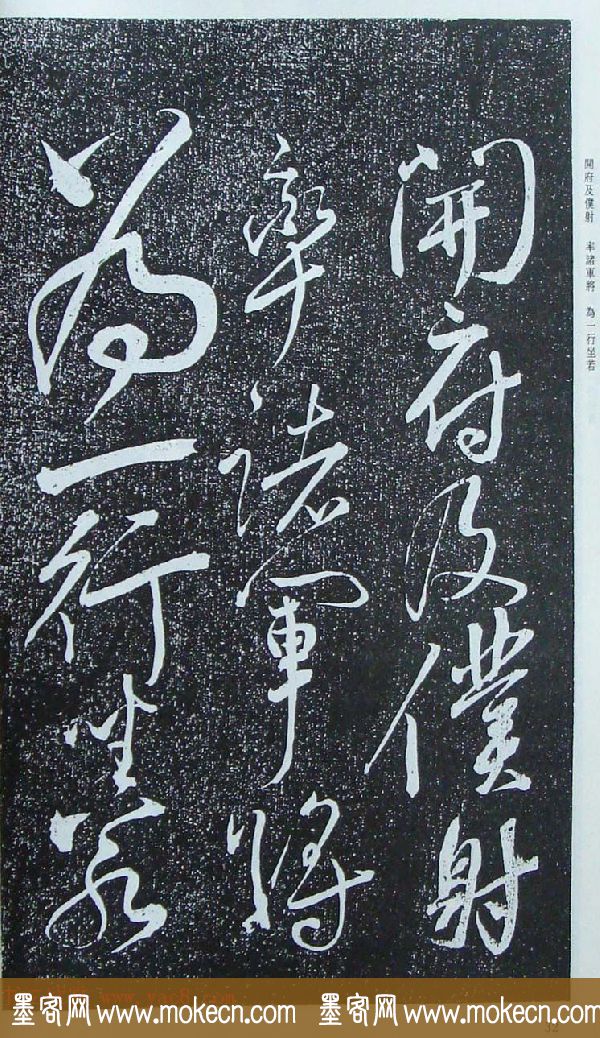 開府及僕射
率諸軍將
為一行坐若
開府及僕射 率諸軍將 為一行坐若
墨客网 www.mokecn.com 墨客网 www.mokecn.com
32